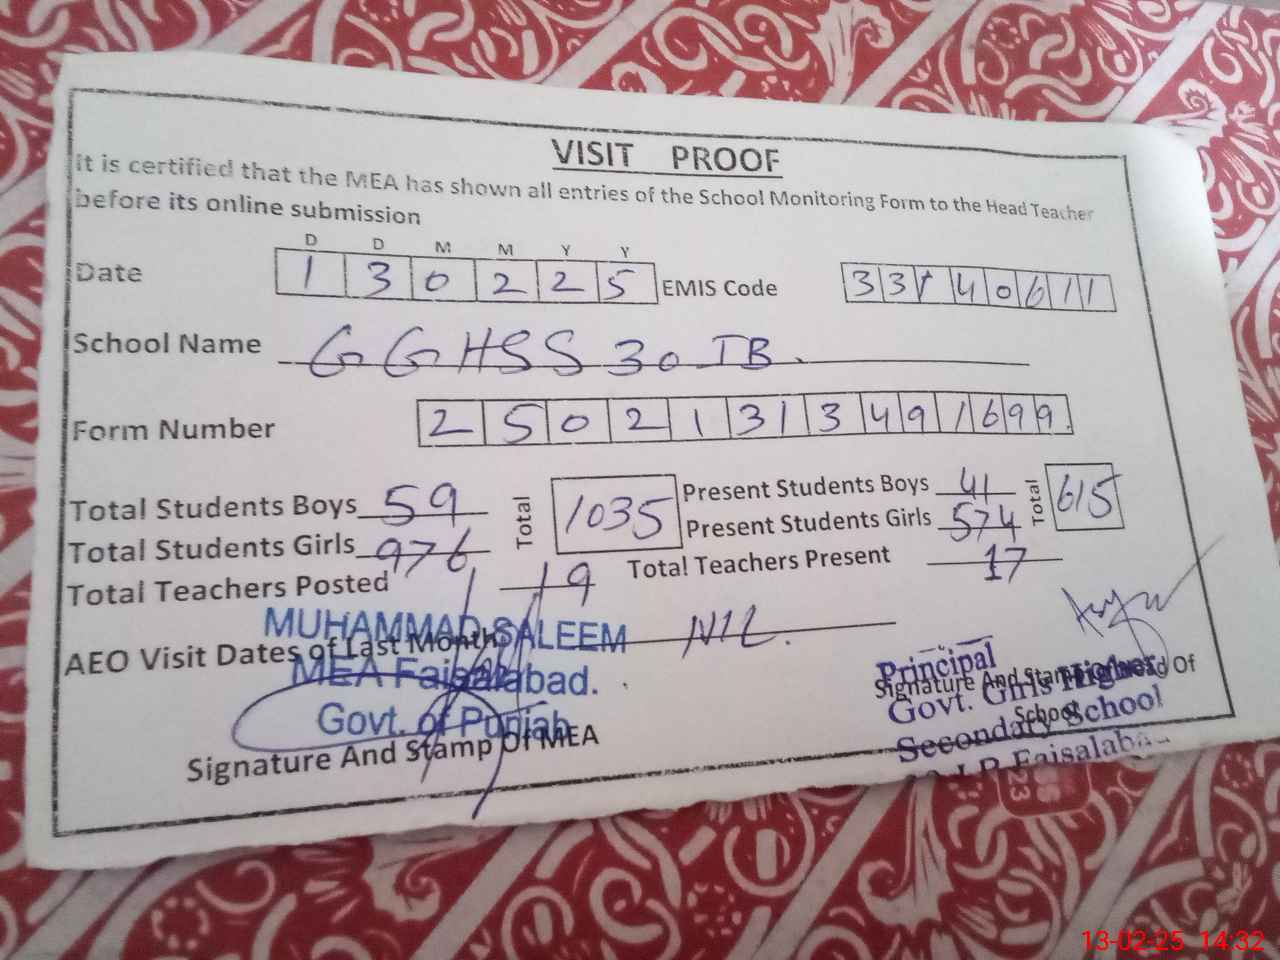 VISIT PROOF
It is certified that the MEA has shown all entries of the School Monitoring Form to the Head Teacher
before its online submission
D D M M Y Y
Date 1 3 0 2 2 5 EMIS Code 3 3 1 4 0 6 1 1
School Name GGHSS 30 JB.
Form Number 2 5 0 2 1 3 1 3 4 9 1 6 9 9
Total Students Boys 59 Total 1035 Present Students Boys 41 Total 615
Total Students Girls 976 Present Students Girls 574
Total Teachers Posted 19 Total Teachers Present 17
MUHAMMAD SALEEM
AEO Visit Dates of Last Month NIL.
MEA Faisalabad.
Govt. of Punjab
Signature And Stamp Of MEA
Principal
Signature And Stamp Of Head Of
School
Govt. Girls Higher
Secondary School
Faisalabad
23
13-02-25 14:32